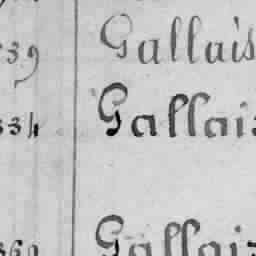 39 Gallais
334 Gallais
369 Gallais